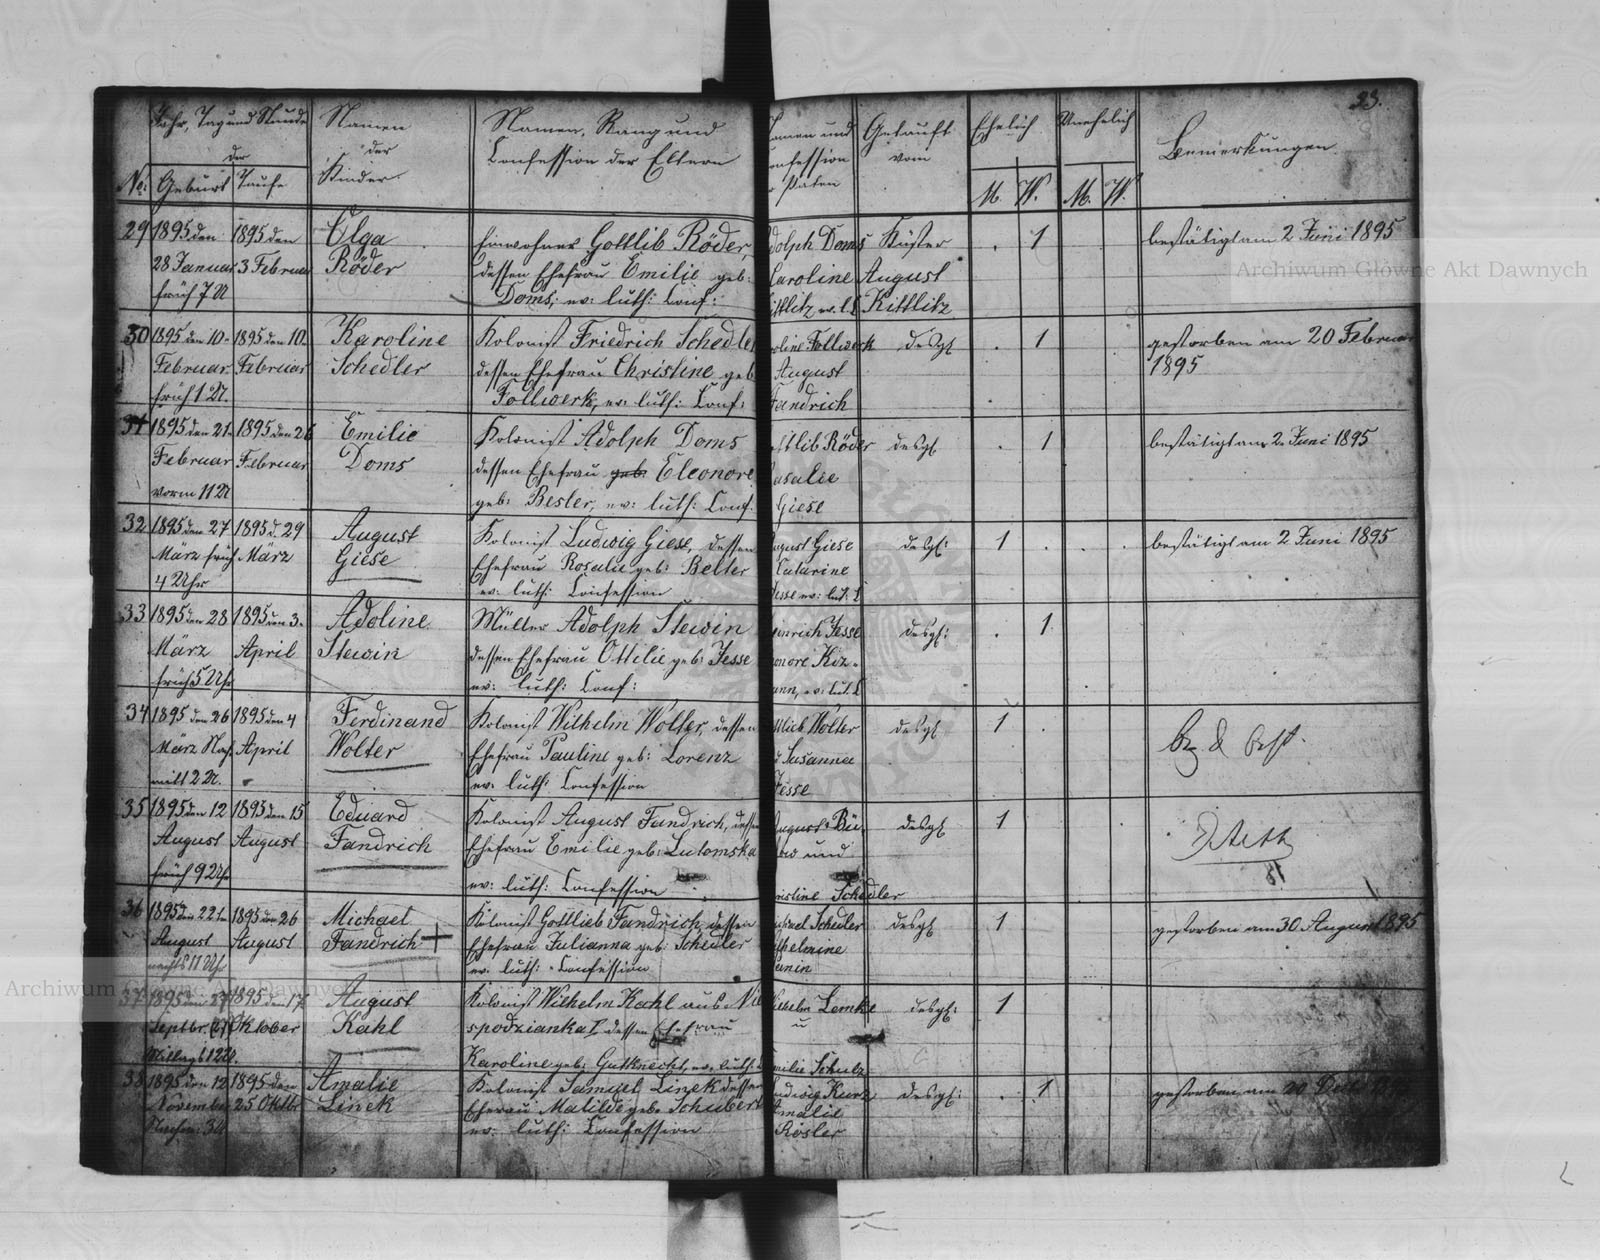 33.
Jahr, Tag und Stunde
der
No: Geburt Taufe
Namen
der
Kinder.
Namen, Rang und
Confession der Eltern
Namen und
Confession
Paten
Getauft
vom
Ehelich
M. W.
Unehelich
M. W.
Bemerkungen.
29 1895 den 1895 den Olga Einwohner Gottlib Röder, Adolph Doms Küster . 1 bestätigt am 2 Juni 1895
28 Januar 3 Februar Röder dessen Ehefrau Emilie geb: Caroline August
früh 7 U Doms, ev: luth: Conf: Kittlitz ev. l. Kittlitz
30 1895 den 10. 1895 den 10. Karoline Kolonist Friedrich Schedler Follwerk desgl . 1 gestorben am 20 Februar
Februar Februar Schedler dessen Ehefrau Christine geb August 1895
früh 1 U. Follwerk, ev: luth: Conf: Fandrich
31 1895 den 21. 1895 den 26 Emilie Kolonist Adolph Doms Gottlib Röder desgl . 1 bestätigt am 2 Juni 1895
Februar Februar Doms dessen Ehefrau geb. Eleonore Rosalie
vorm 11 U geb: Besler, ev: luth: Conf. Giese
32 1895 den 27 1895 d. 29 August Kolonist Ludwig Giese, dessen August Giese desgl: 1 . . . bestätigt am 2 Juni 1895
März früh März Giese Ehefrau Rosalie geb: Belter Catarine
4 Uhr ev: luth: Confession Jesse ev: lut:
33 1895 den 28 1895 den 3. Adoline Müller Adolph Stewin Heinrich Jesse desgl: . 1
März April Stewin dessen Ehefrau Ottilie geb: Jesse
früh 5 Uhr ev: luth: Conf:
34 1895 den 26 1895 den 4 Ferdinand Kolonist Wilhelm Wolter, dessen Wolter desgl 1 .
März Nach April Wolter Ehefrau Pauline geb: Lorenz Susanna
mitt 2 U. ev: luth: Confession Jesse
35 1895 den 12 1895 den 15 Eduard Kolonist August Fandrich, dessen August desgl 1
August August Fandrich Ehefrau Emilie geb: Lutomska und
früh 9 Uhr ev: luth: Confession Christine Schedler
36 1895 den 22 1895 den 26 Michael Kolonist Gottlieb Fandrich dessen Michael Schedler desgl 1 gestorben am 30 August 1895
August August Fandrich + Ehefrau Julianna geb: Schedler
nachts 11 Uhr ev: luth: Confession
37 1895 den 27 1895 den 17 August Kolonist Wilhelm Kahl aus Wilhelm Lemke desgl: 1
Septbr. Oktober Kahl dessen Ehefrau u
Karoline geb: Gutknecht, ev. luth: Emilie Schulz
38 1895 den 12 1895 den Amalie Kolonist Samuel Linek dessen Ludwig Kurz desgl: . 1 gestorben am 20
November 25 Linek Ehefrau Matilde geb. Schubert Amalie
ev: luth: Confession Rösler
Archiwum Główne Akt Dawnych
Archiwum Główne Akt Dawnych